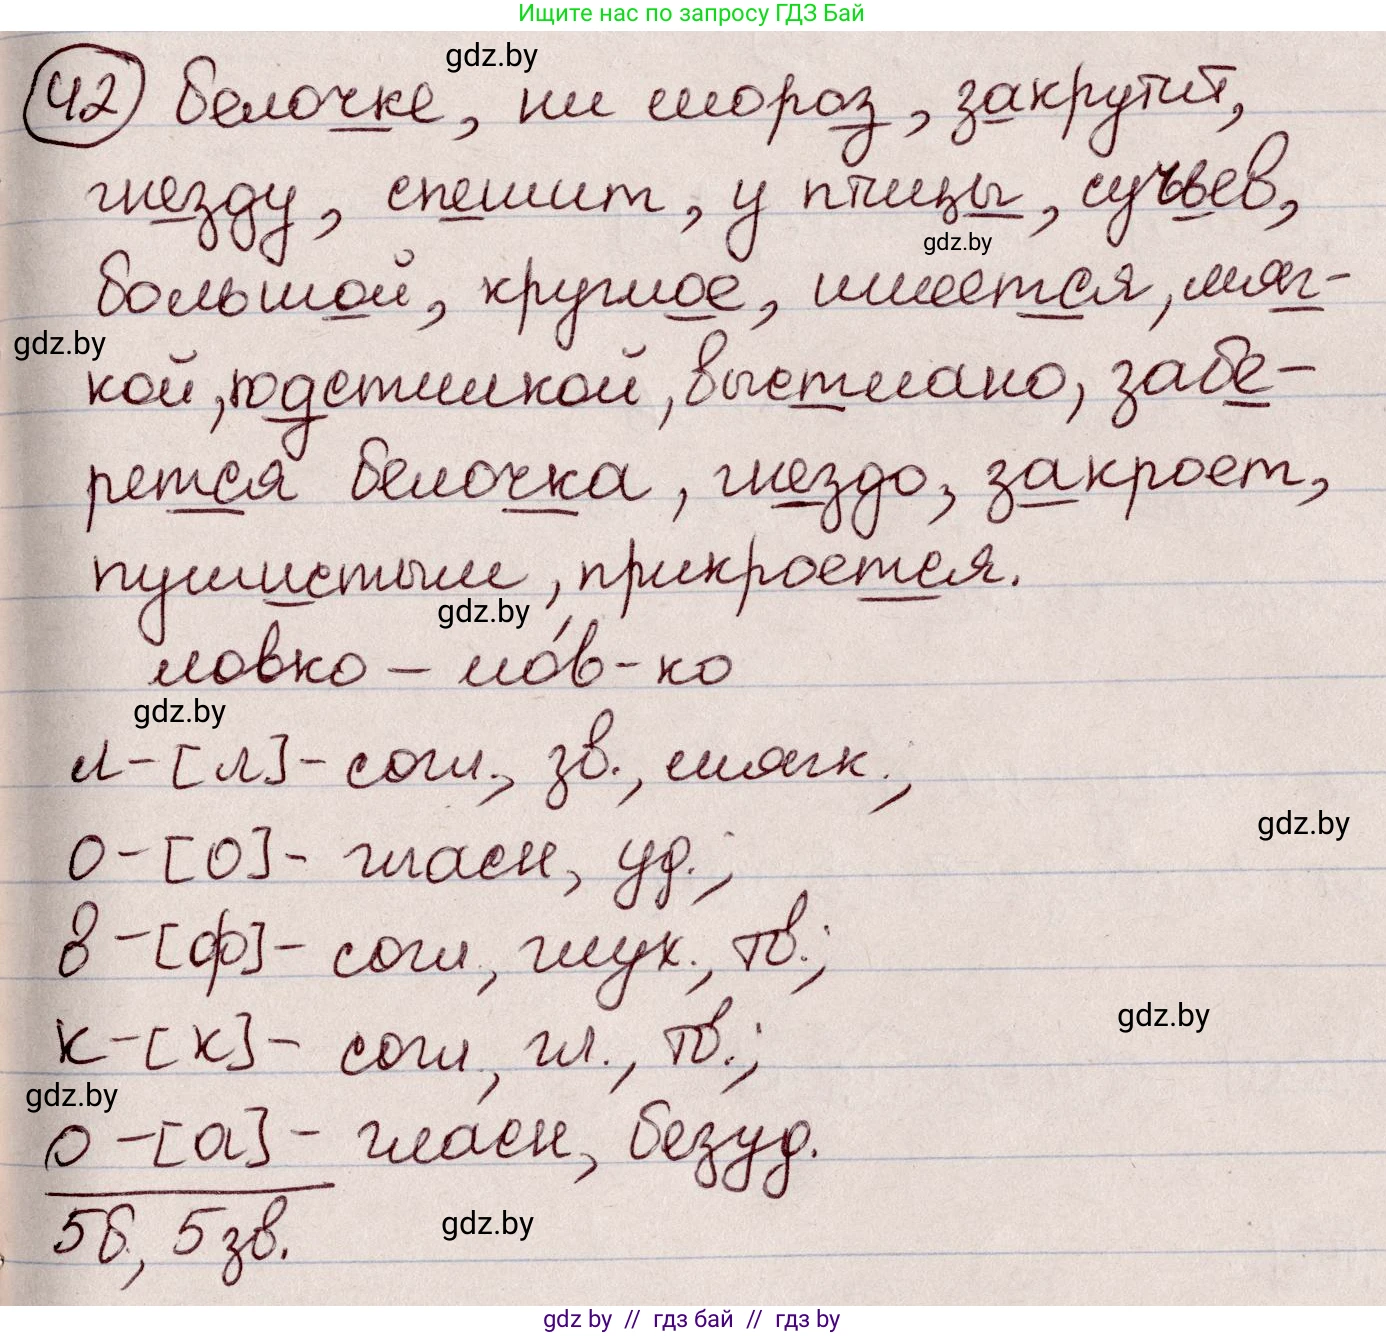 Ищите нас по запросу ГДЗ Бай
gdz.by
42 белочке, ни мороз, закрутит,
гнезду, спешит, у птицы, сучьев,
gdz.by
большой, круглое, имеется, мяг-
gdz.by
кой, подстилкой, выстлано, забе-
рется белочка, гнездо, закроет,
пушистым, прикроется.
gdz.by
ловко – ло́в-ко
gdz.by
л-[л]- согл., зв., мягк.;
gdz.by
о-[о]- гласн, уд.;
в-[ф]- согл., глух., тв.;
gdz.by
к-[к]- согл, гл., тв.;
gdz.by
о-[а]- гласн, безуд.
5б, 5зв.
gdz.by
gdz by // гдз бай // гдз by